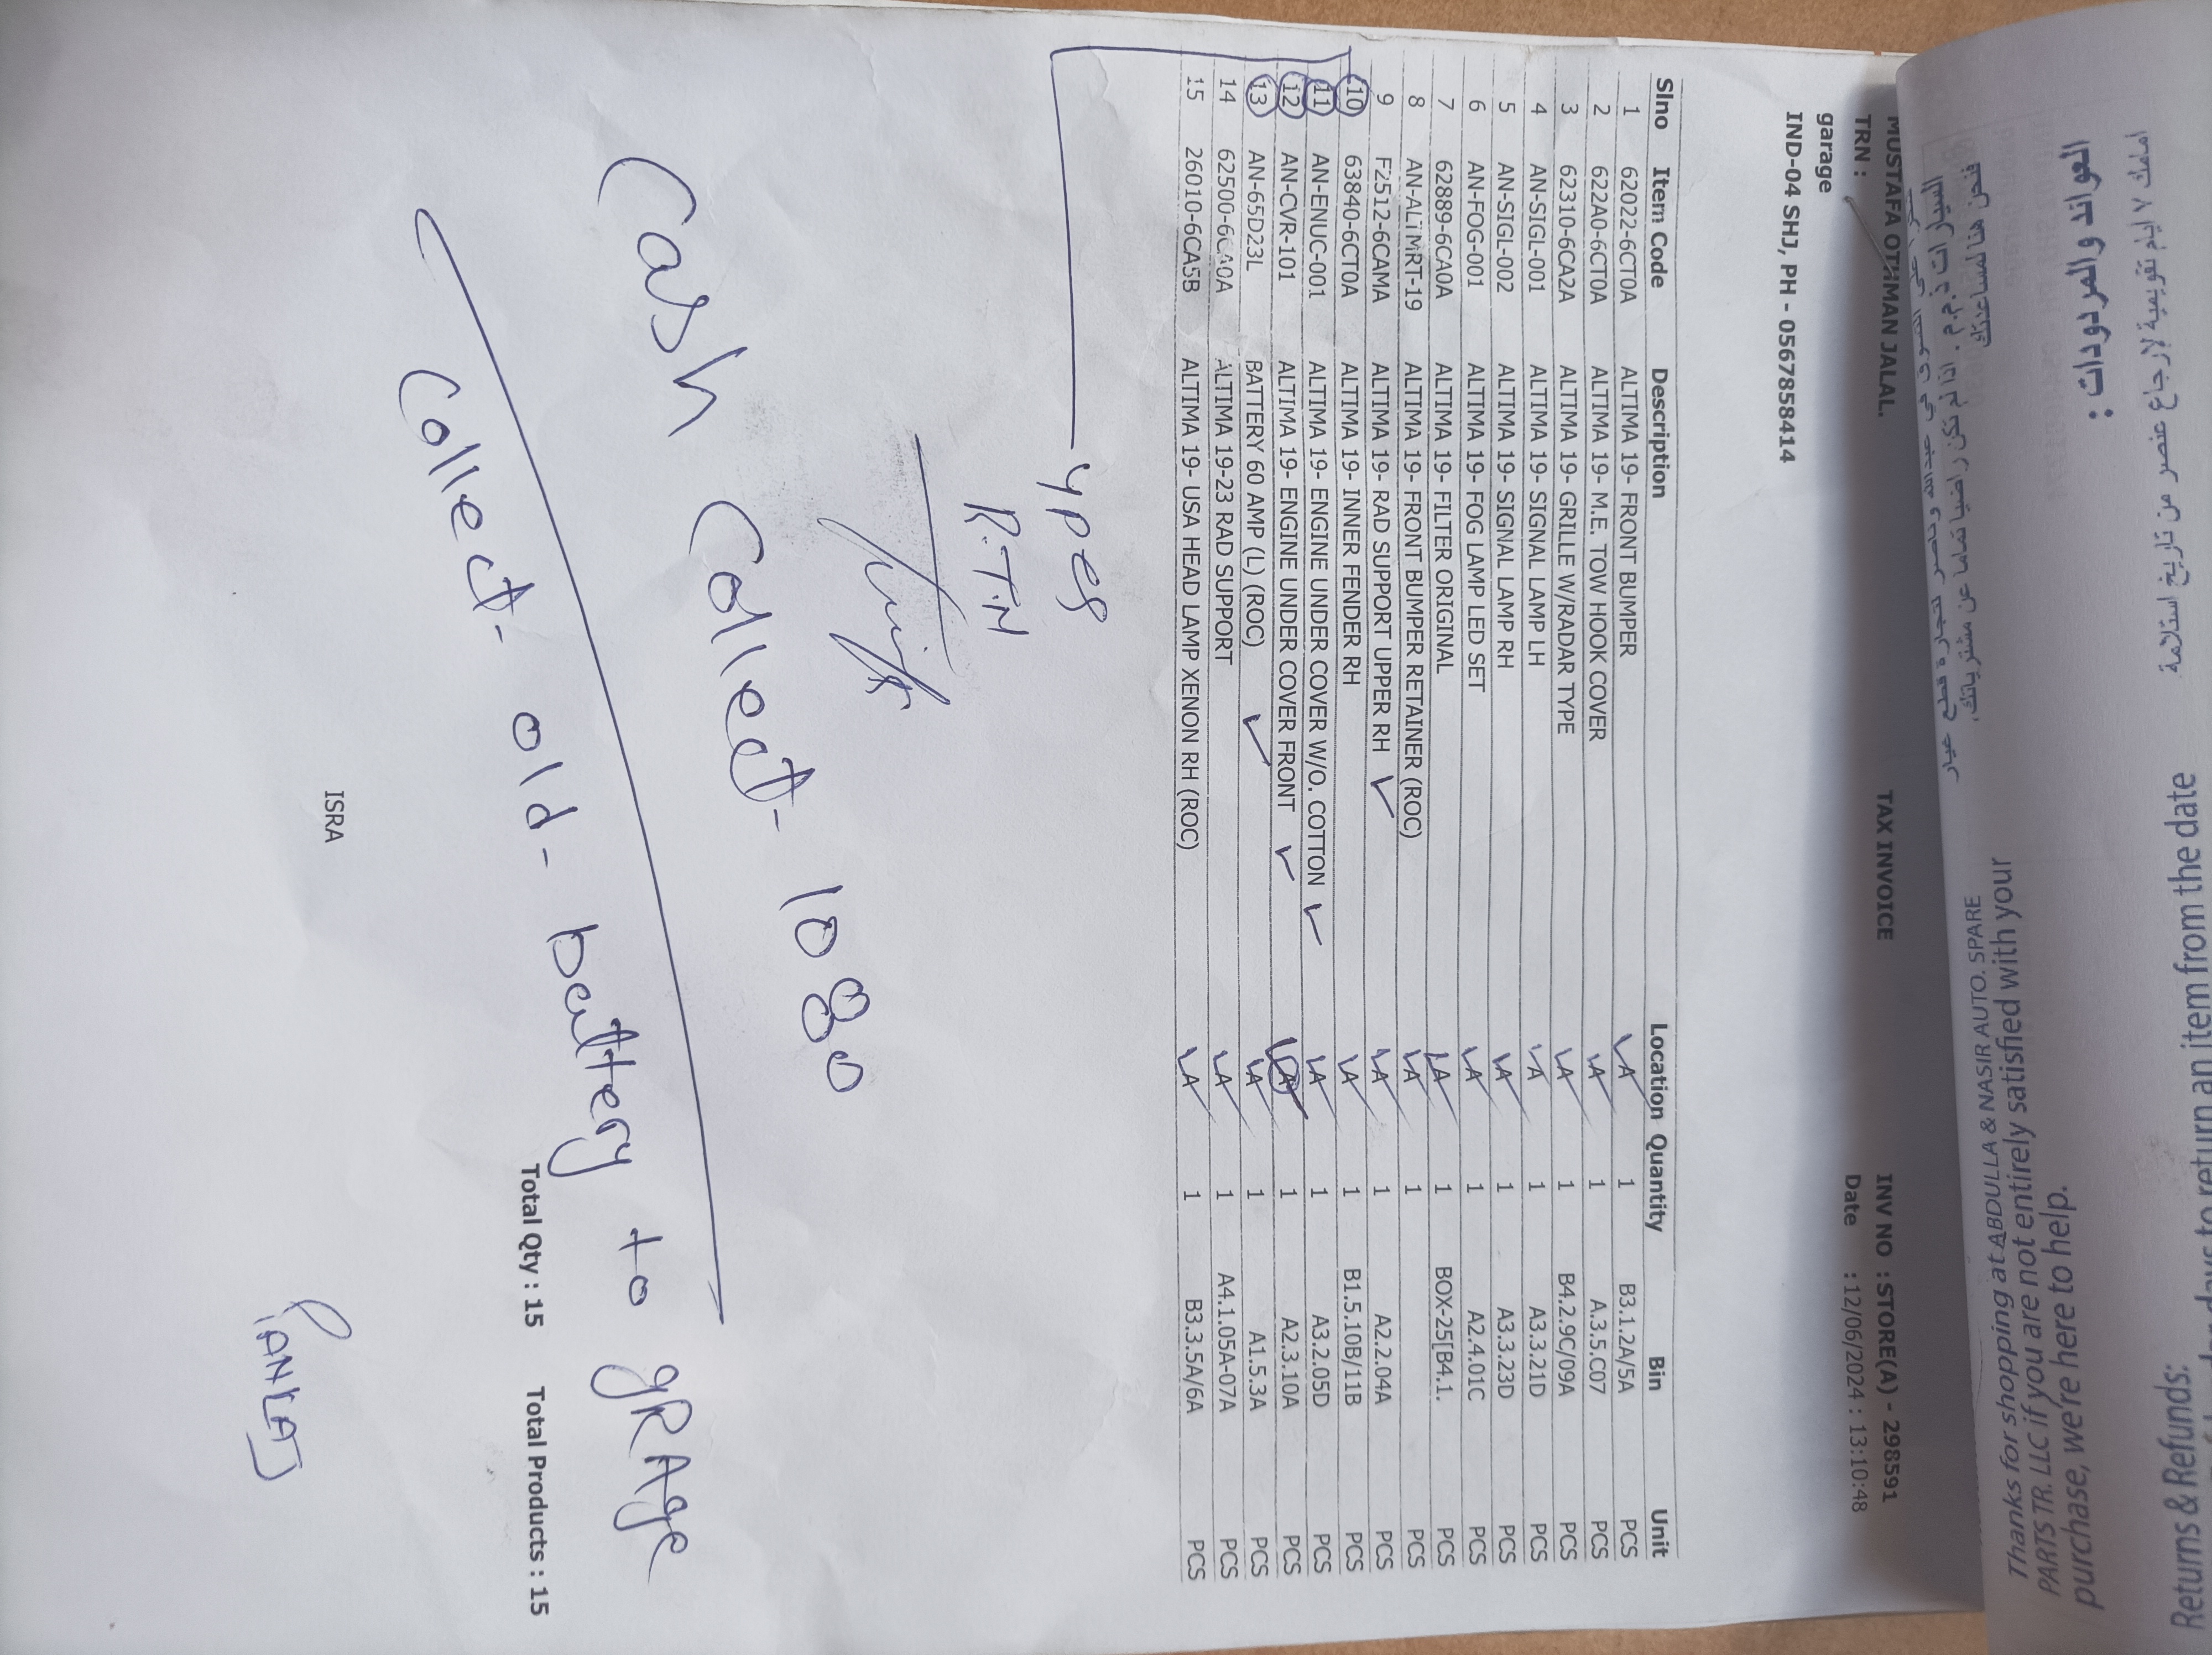 امامك ٧ ايام تقويمية لإرجاع عنصر من تاريخ استلامه
العوائد و المردودات :
Returns & Refunds:
to return an item from the date
Thanks for shopping at ABDULLA & NASIR AUTO. SPARE
PARTS TR. LLC if you are not entirely satisfied with your
purchase, we're here to help.
MUSTAFA OTHMAN JALAL. TAX INVOICE INV NO : STORE(A) - 298591
TRN : Date : 12/06/2024 : 13:10:48
garage
IND-04 SHJ, PH - 0567858414
Slno Item Code Description Location Quantity Bin Unit
1 62022-6CT0A ALTIMA 19- FRONT BUMPER A 1 B3.1.2A/5A PCS
2 622A0-6CT0A ALTIMA 19- M.E. TOW HOOK COVER A 1 A.3.5.C07 PCS
3 62310-6CA2A ALTIMA 19- GRILLE W/RADAR TYPE A 1 B4.2.9C/09A PCS
4 AN-SIGL-001 ALTIMA 19- SIGNAL LAMP LH A 1 A3.3.21D PCS
5 AN-SIGL-002 ALTIMA 19- SIGNAL LAMP RH A 1 A3.3.23D PCS
6 AN-FOG-001 ALTIMA 19- FOG LAMP LED SET A 1 A2.4.01C PCS
7 62889-6CA0A ALTIMA 19- FILTER ORIGINAL A 1 BOX-25[B4.1. PCS
8 AN-ALTMRT-19 ALTIMA 19- FRONT BUMPER RETAINER (ROC) A 1 PCS
9 F2512-6CAMA ALTIMA 19- RAD SUPPORT UPPER RH A 1 A2.2.04A PCS
10 63840-6CT0A ALTIMA 19- INNER FENDER RH A 1 B1.5.10B/11B PCS
11 AN-ENUC-001 ALTIMA 19- ENGINE UNDER COVER W/O. COTTON A 1 A3.2.05D PCS
12 AN-CVR-101 ALTIMA 19- ENGINE UNDER COVER FRONT A 1 A2.3.10A PCS
13 AN-65D23L BATTERY 60 AMP (L) (ROC) A 1 A1.5.3A PCS
14 62500-6CA0A ALTIMA 19-23 RAD SUPPORT A 1 A4.1.05A-07A PCS
15 26010-6CA5B ALTIMA 19- USA HEAD LAMP XENON RH (ROC) A 1 B3.3.5A/6A PCS
4 pcs
R.T.N
Cash Collect- 1080
Collect- old- battery to gRAge
Total Qty : 15 Total Products : 15
ISRA
PANKAJ